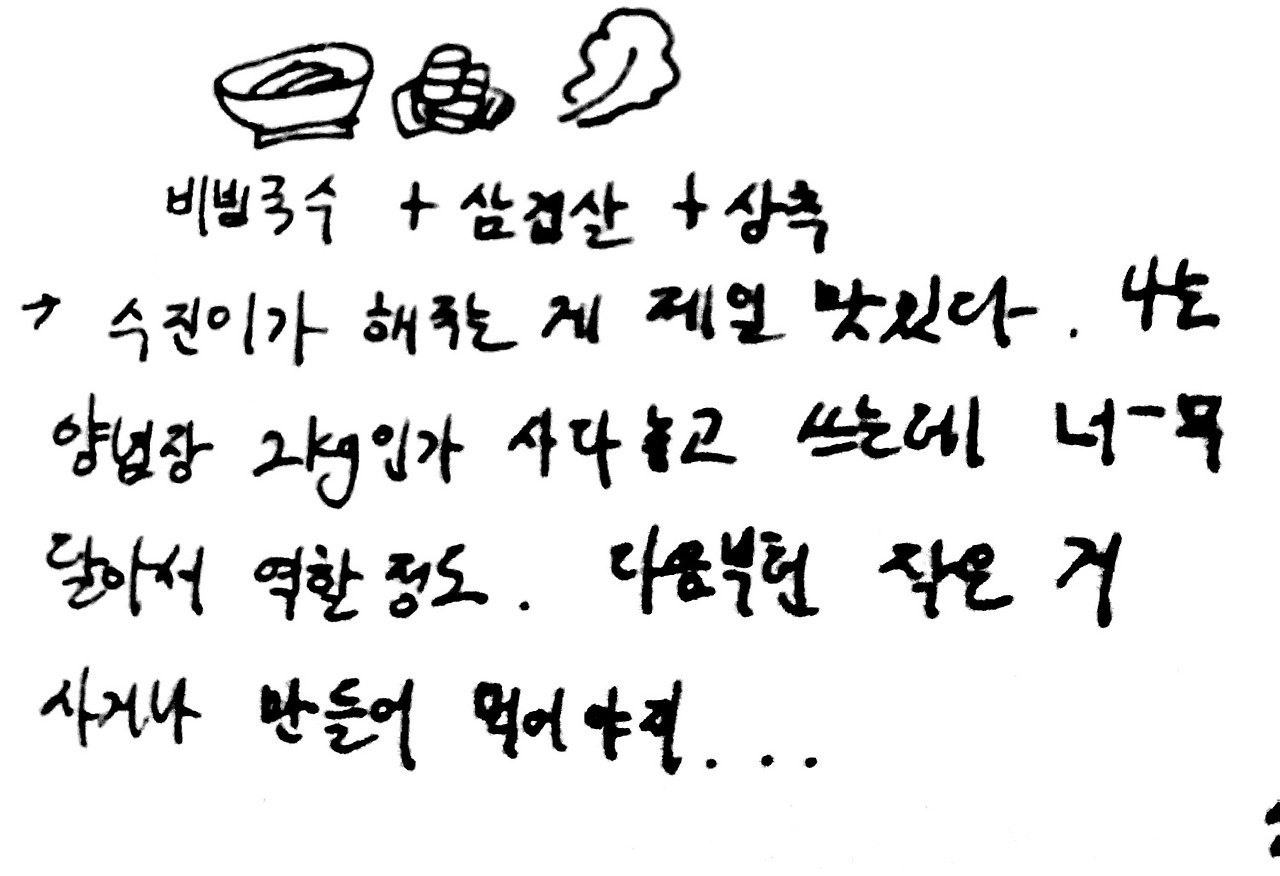 비빔국수 + 삼겹살 + 상추
→ 수진이가 해주는 게 제일 맛있다. 나는
양념장 2kg인가 사다놓고 쓰는데 너-무
달아서 역한 정도. 다음부턴 작은 거
사거나 만들어 먹어야지...